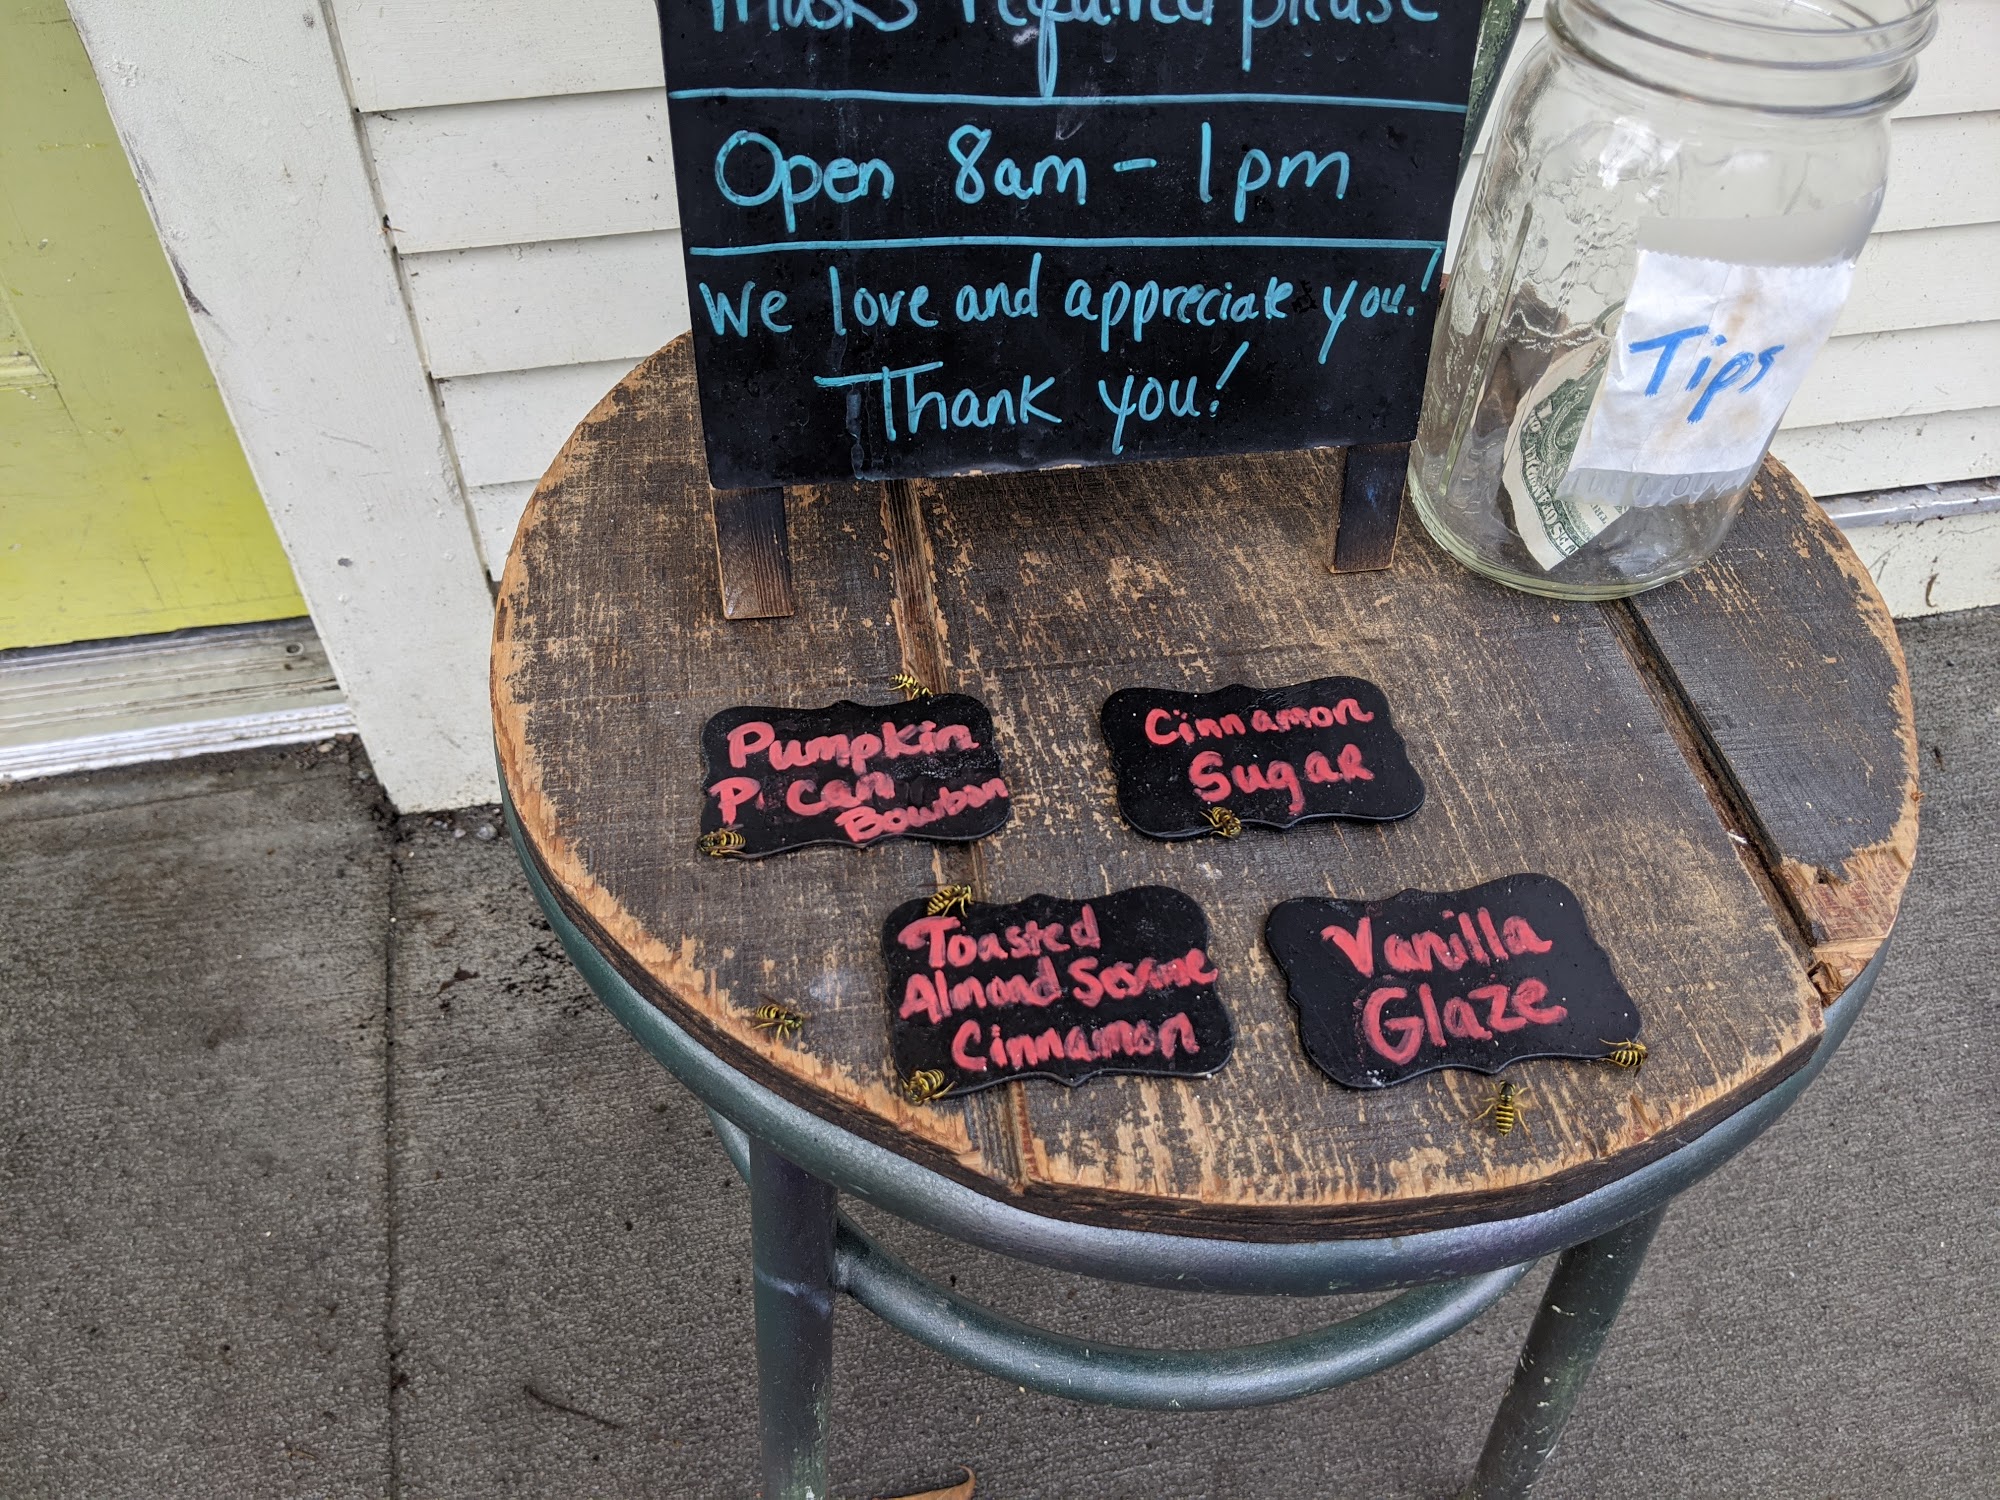 Masks required please
Open 8am - 1pm
We love and appreciate you!
Thank you!
Tips
Pumpkin
P can
Bourbon
Cinnamon
Sugar
Toasted
Almond Sesame
Cinnamon
Vanilla
Glaze